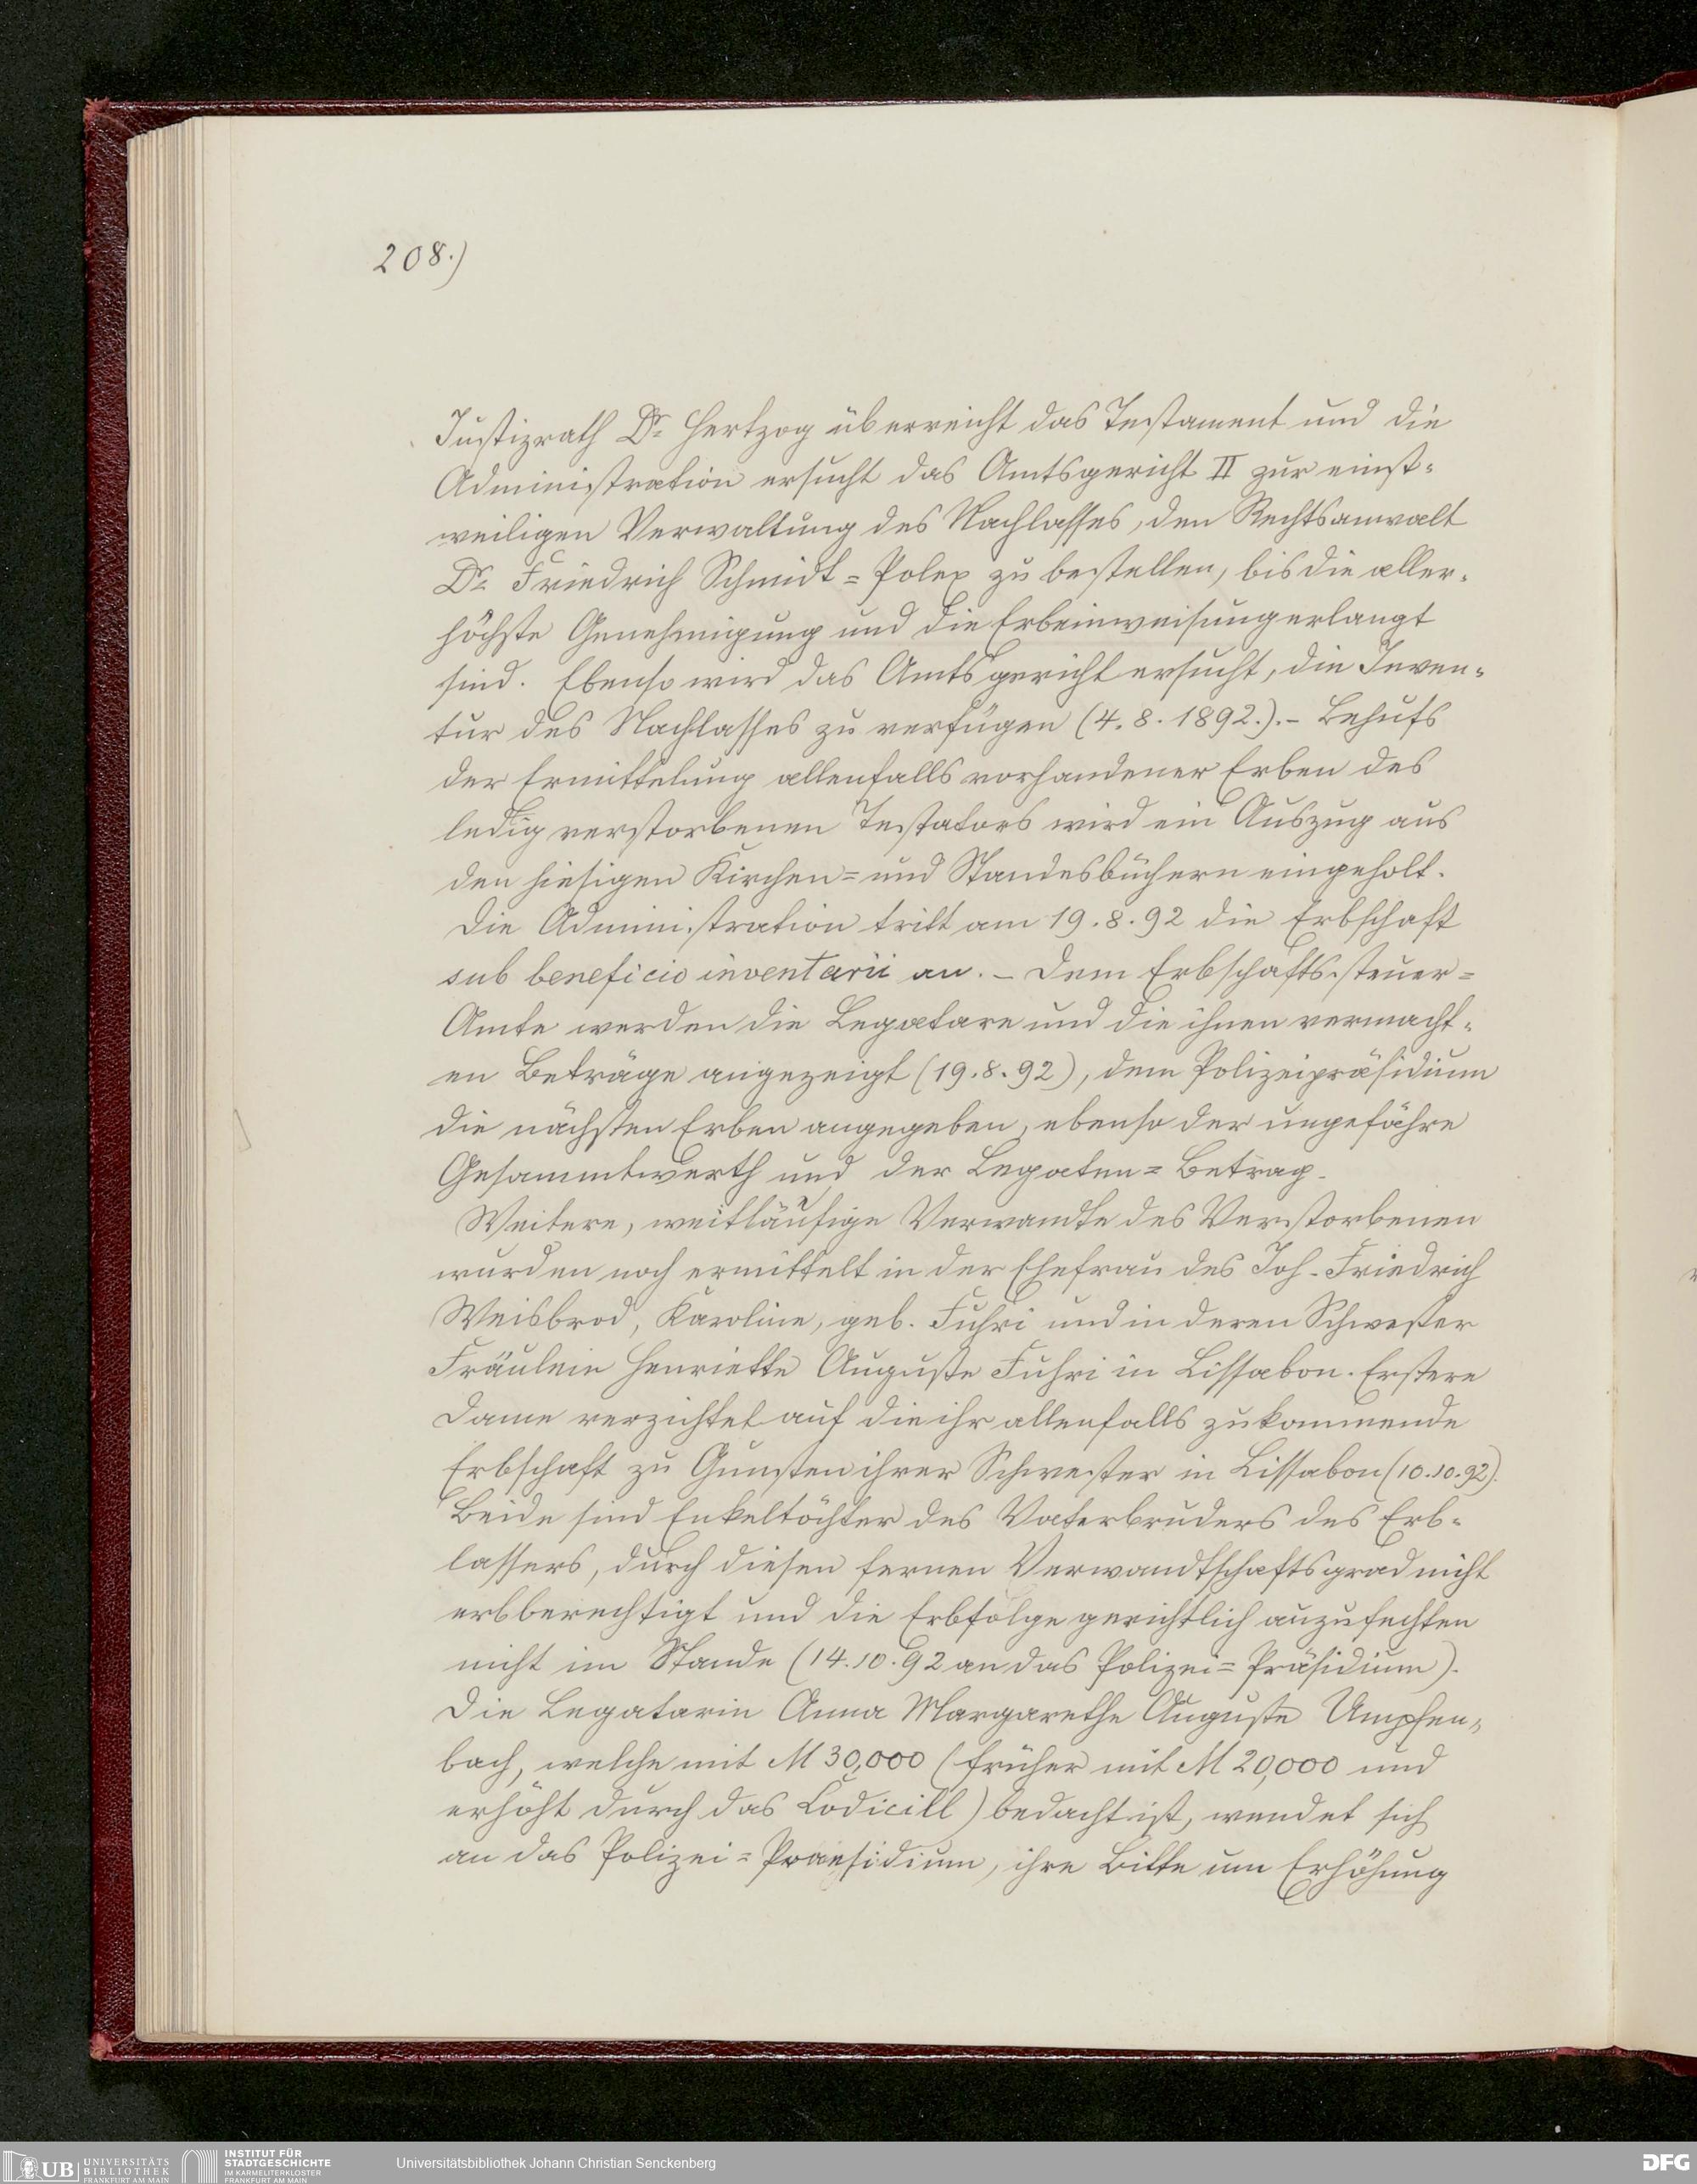 208.)
Justizrath Dr. Hertzog überreicht das Testament und die
Administration ersucht das Amtsgericht II zur einst=
weiligen Verwaltung des Nachlasses, den Rechtsanwalt
Dr. Friedrich Schmidt=Polex zu bestellen, bis die aller=
höchste Genehmigung und die Erbeinweisung erlangt
sind. Ebenso wird das Amtsgericht ersucht, die Inven=
tur des Nachlasses zu verfügen (4. 8. 1892.). – Behufs
der Ermittelung allenfalls vorhandener Erben des
ledig verstorbenen Testators wird ein Auszug aus
den hiesigen Kirchen= und Standesbüchern eingeholt.
Die Administration tritt am 19. 8. 92 die Erbschaft
sub beneficio inventarii an. – Dem Erbschaftssteuer=
Amte werden die Legatare und die ihnen vermacht=
en Beträge angezeigt (19. 8. 92), dem Polizeipräsidium
die nächsten Erben angegeben, ebenso der ungefähre
Gesammtwerth und der Legaten=Betrag.
Weitere, weitläufige Verwandte des Verstorbenen
wurden noch ermittelt in der Ehefrau des Joh. Friedrich
Weisbrod, Karoline, geb. Fuhri und in deren Schwester
Fräulein Henriette Auguste Fuhri in Lissabon. Erstere
Dame verzichtet auf die ihr allenfalls zukommende
Erbschaft zu Gunsten ihrer Schwester in Lissabon (10. 10. 92).
Beide sind Enkeltöchter des Vaterbruders des Erb=
lassers, durch diesen fernen Verwandtschaftsgrad nicht
erbberechtigt und die Erbfolge gerichtlich anzufechten
nicht im Stande (14. 10. 92 an das Polizei=Präsidium).
Die Legatarin Anna Margarethe Auguste Umpfen=
bach, welche mit M 30,000 (früher mit M 20,000 und
erhöht durch das Codicill) bedacht ist, wendet sich
an das Polizei=Praesidium, ihre Bitte um Erhöhung
UB UNIVERSITÄTS
BIBLIOTHEK
FRANKFURT AM MAIN
INSTITUT FÜR
STADTGESCHICHTE
IM KARMELITERKLOSTER
FRANKFURT AM MAIN
Universitätsbibliothek Johann Christian Senckenberg
DFG